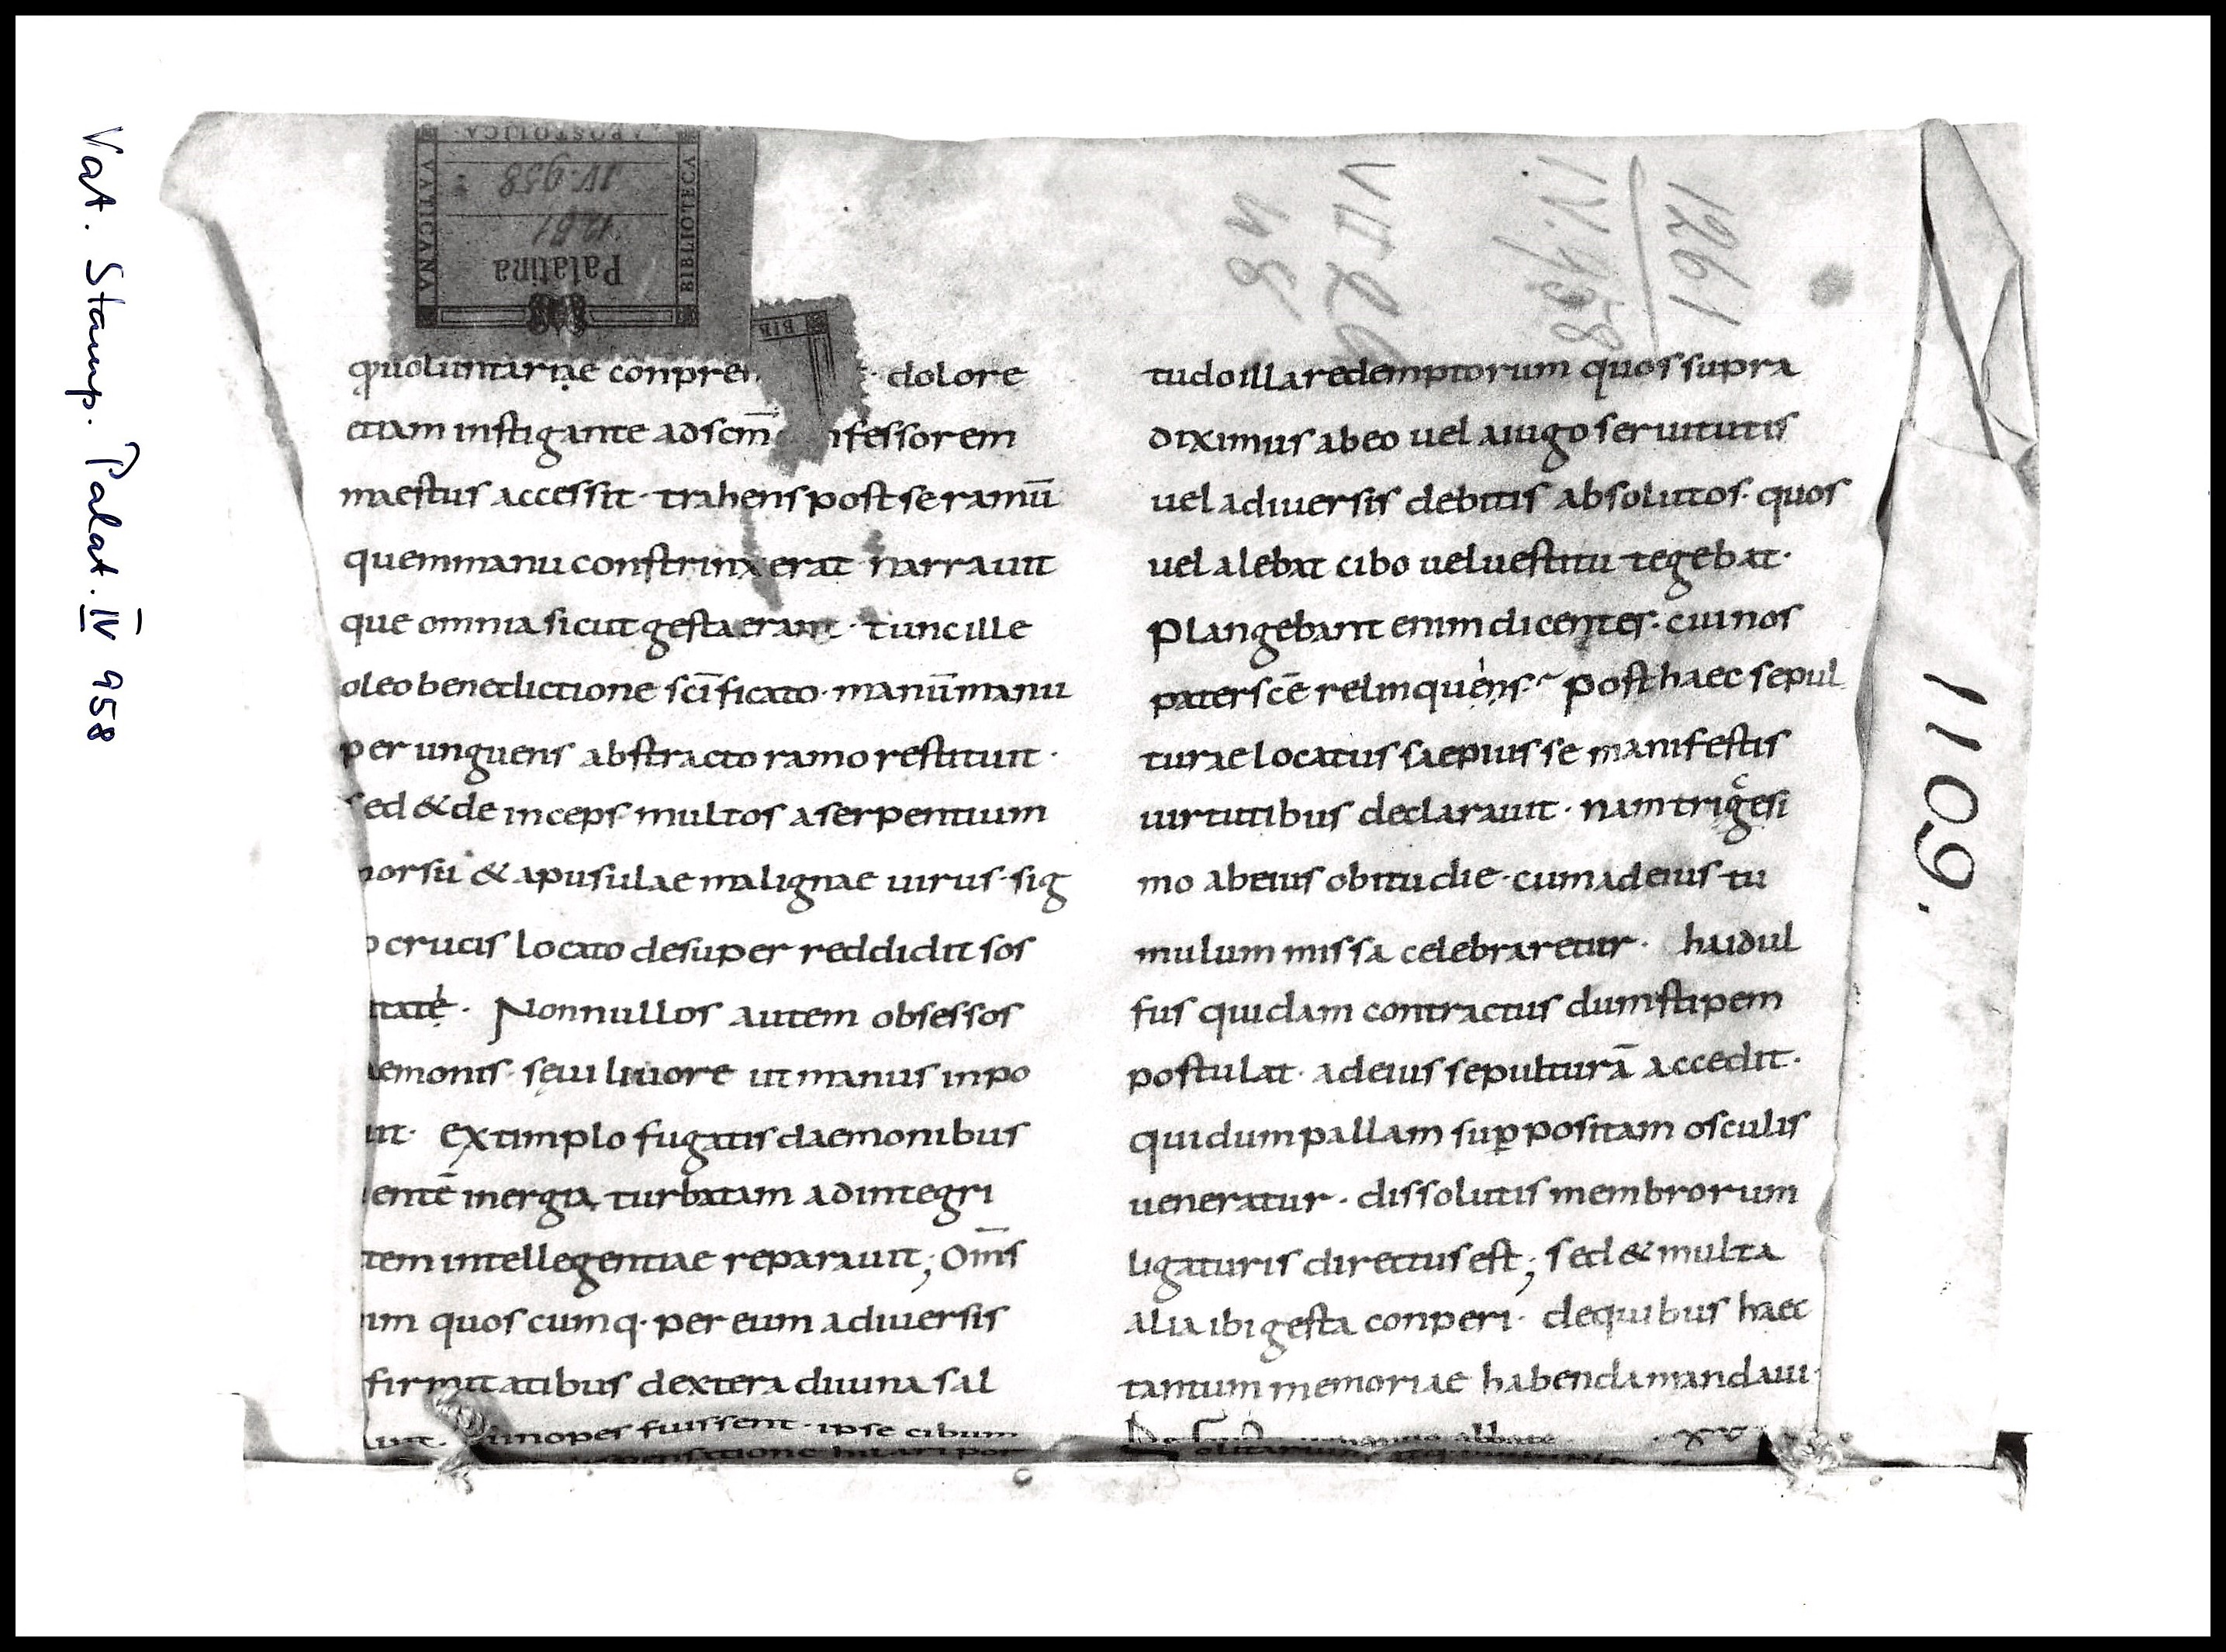 Vat. Stamp. Palat. IV 958
BIBLIOTECA
APOSTOLICA
VATICANA
Palatina
1261
IV. 958
BIB
1261
IV. 958
1109.
quoluntariae dolore
etiam instigante ad scm̄
maestus accessit · trahens post se ramū
quem manu constrinxerat narrauit
que omnia sicut gesta erant · tunc ille
oleo benedictione scīficato · manūmanu
per unguens abstracto ramo restituit ·
sed & de inceps multos a serpentium
& apusulae malignae uirus · sig
crucis locato desuper reddidit sos
Nonnullos autem obsessos
seui liuore ut manus inpo
extimplo fugatis daemonibus
inergia turbatam ad integri
tem intellegentiae reparauit; Om̄s
quoscumq· per eum a diuersis
firmitatibus dextera diuina sal
inopes fuissent · ipse cibum
tudo illa redemptorum quos supra
diximus ab eo uel a iugo seruitutis
uel a diuersis debitis absolutos · quos
uel alebat cibo uel uestitu tegebat ·
Plangebant enim dicentes · cui nos
pater scē relinquens · Post haec sepul
turae locatus saepius se manifestis
uirtutibus declarauit · nam trigesi
mo ab eius obitu die · cum ad eius tu
mulum missa celebraretur · haidul
fus quidam contractus dum stipem
postulat · ad eius sepulturā accedit ·
qui dum pallam sup̱positam osculis
ueneratur · dissolutis membrorum
ligaturis directus est; sed & multa
alia ibi gesta conperi · de quibus haec
tantum memoriae habenda mandaui ·
abbate XV